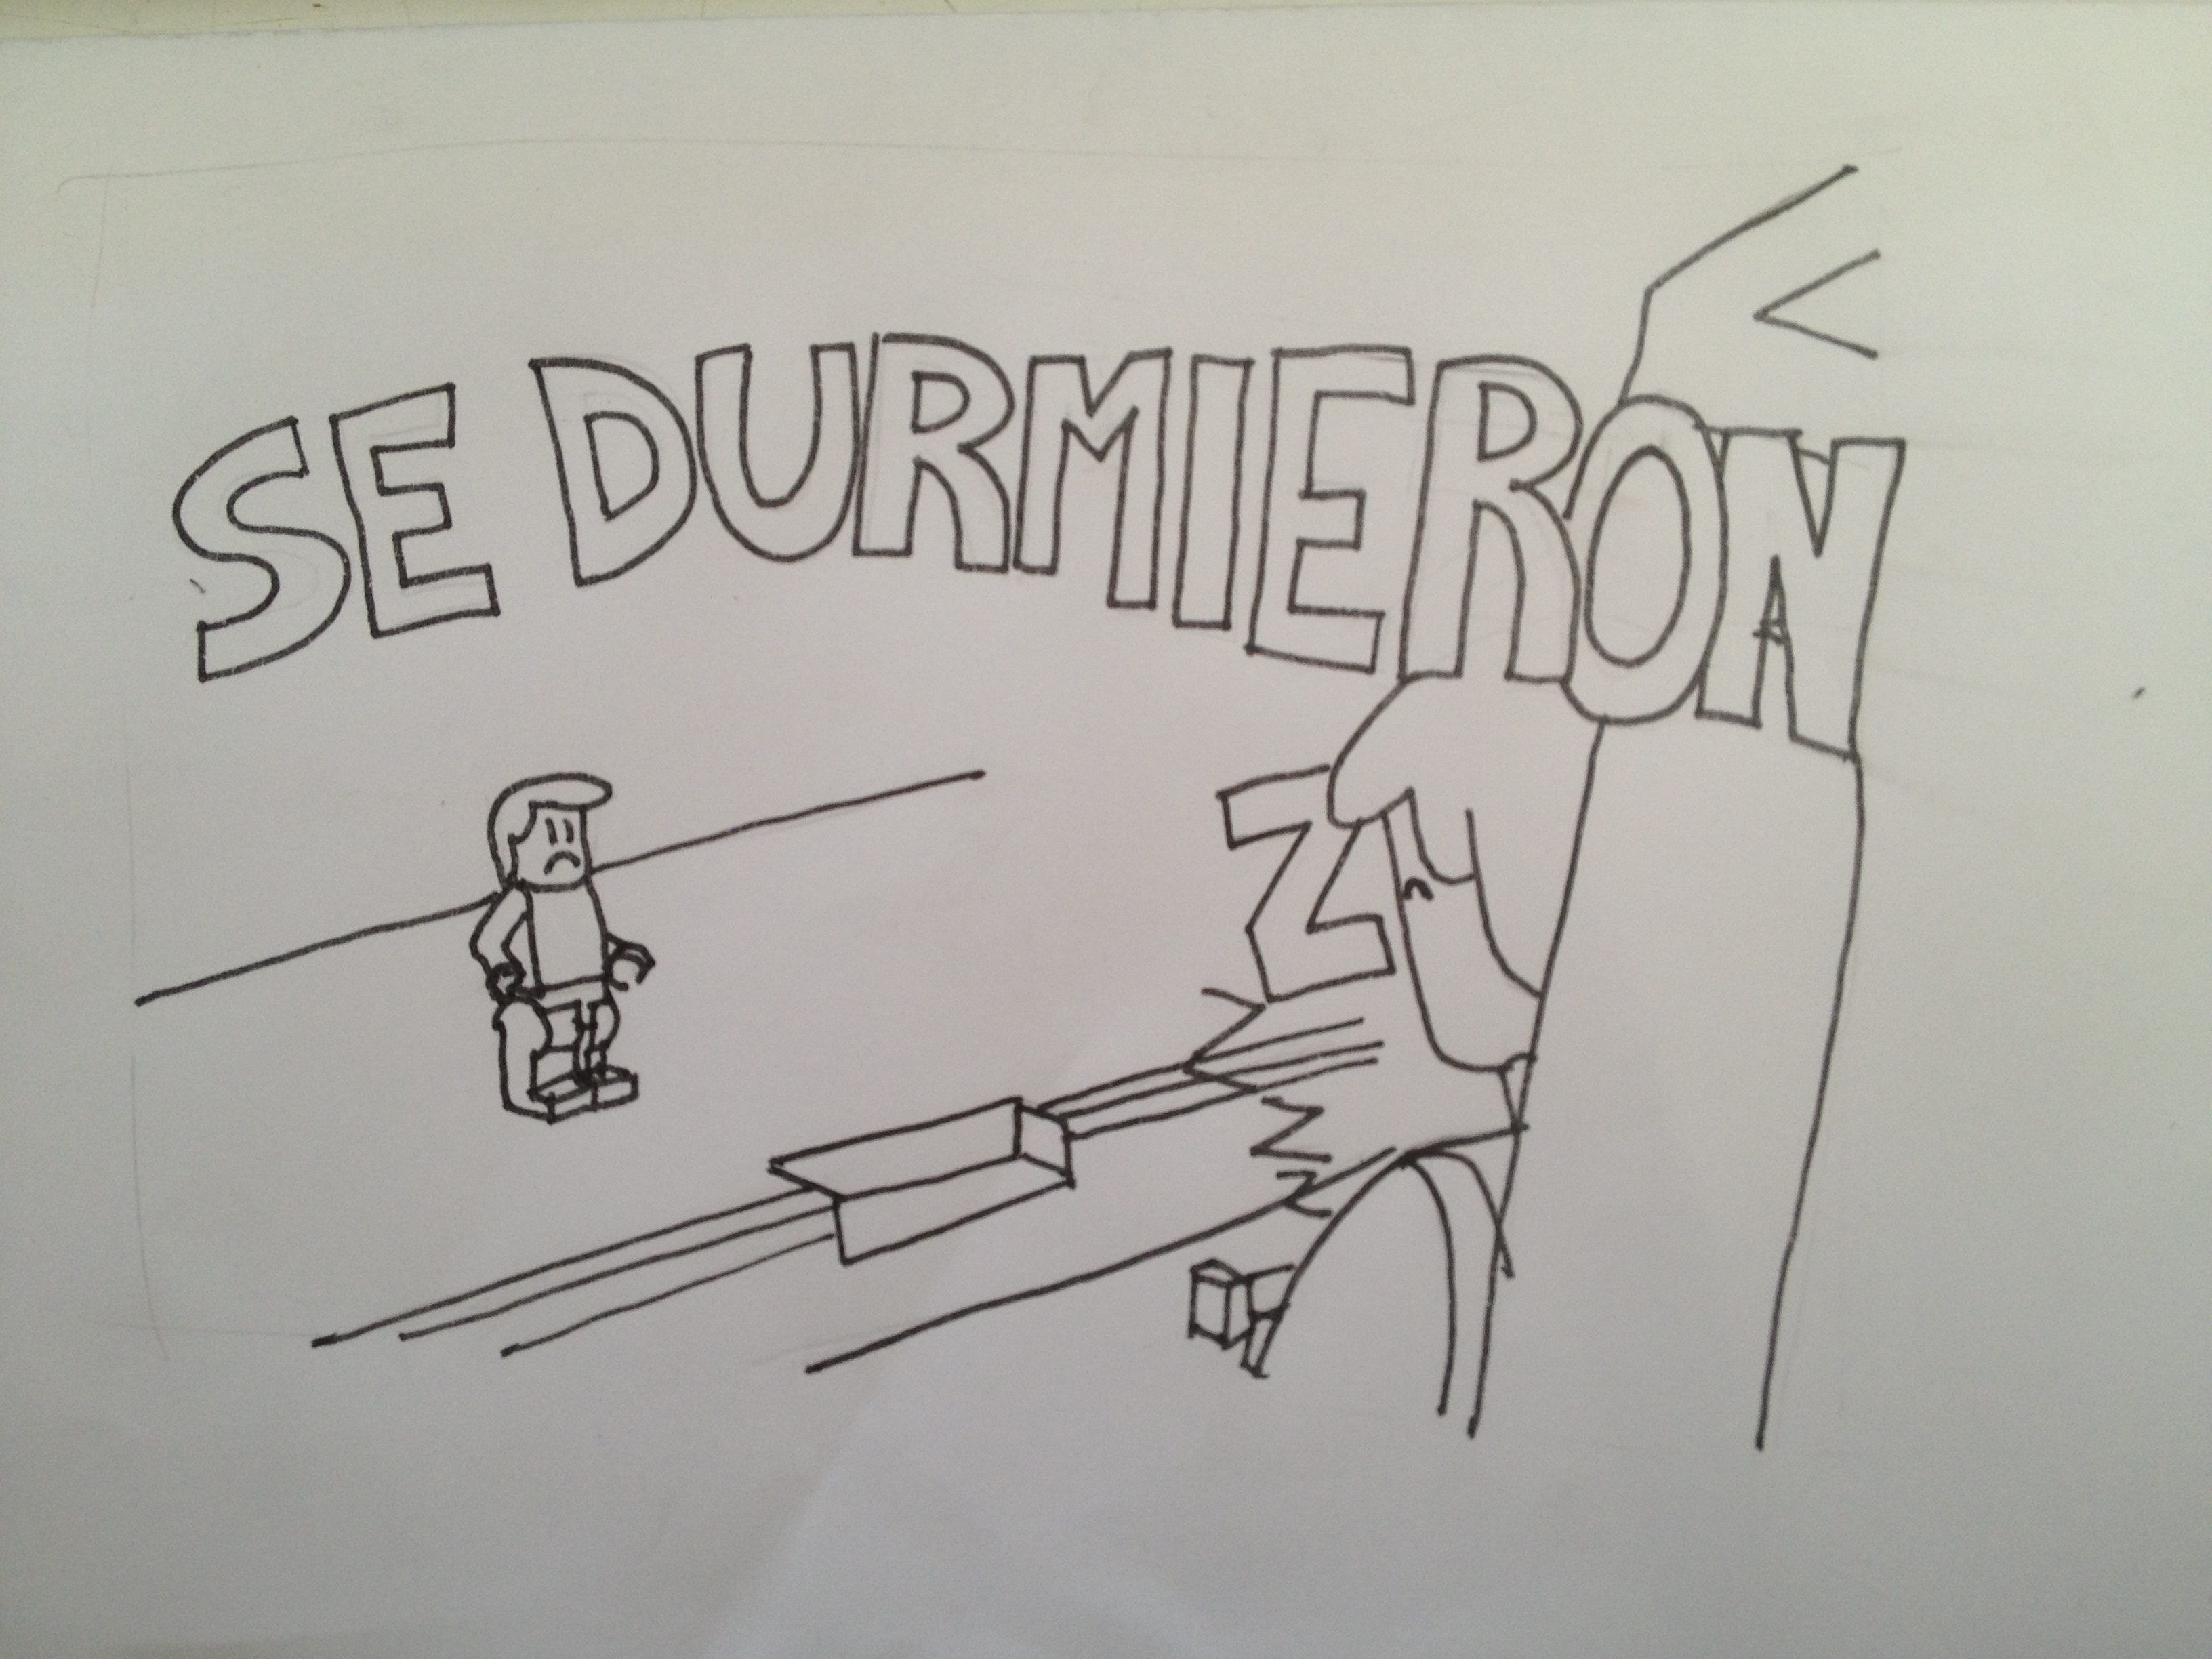 SE DURMIERON
Z
Z
Z
Z